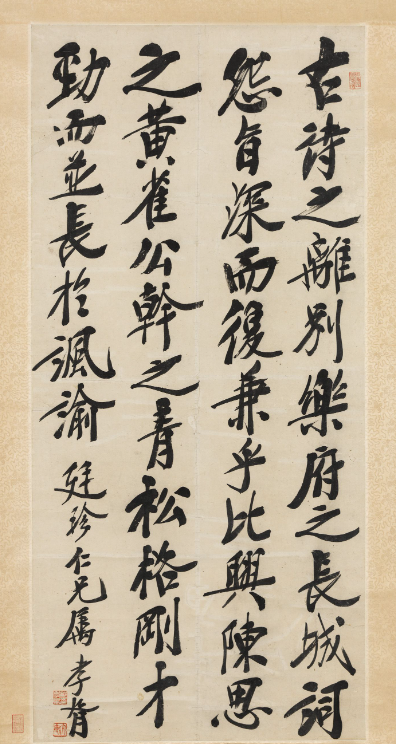 古詩之離別樂府之長城詞
怨旨深而復兼乎比興陳思
之黃雀公幹之青松格剛才
勁而並長於諷諭 廷珍仁兄屬 孝胥